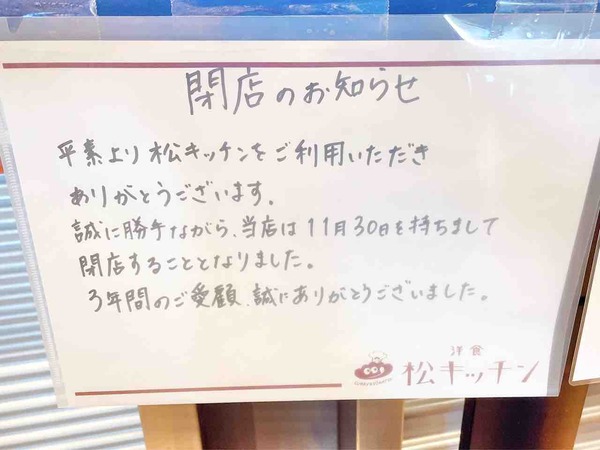 閉店のお知らせ
平素より松キッチンをご利用いただき
ありがとうございます。
誠に勝手ながら、当店は11月30日を持ちまして
閉店することとなりました。
3年間のご愛顧、誠にありがとうございました。
洋食
松キッチン